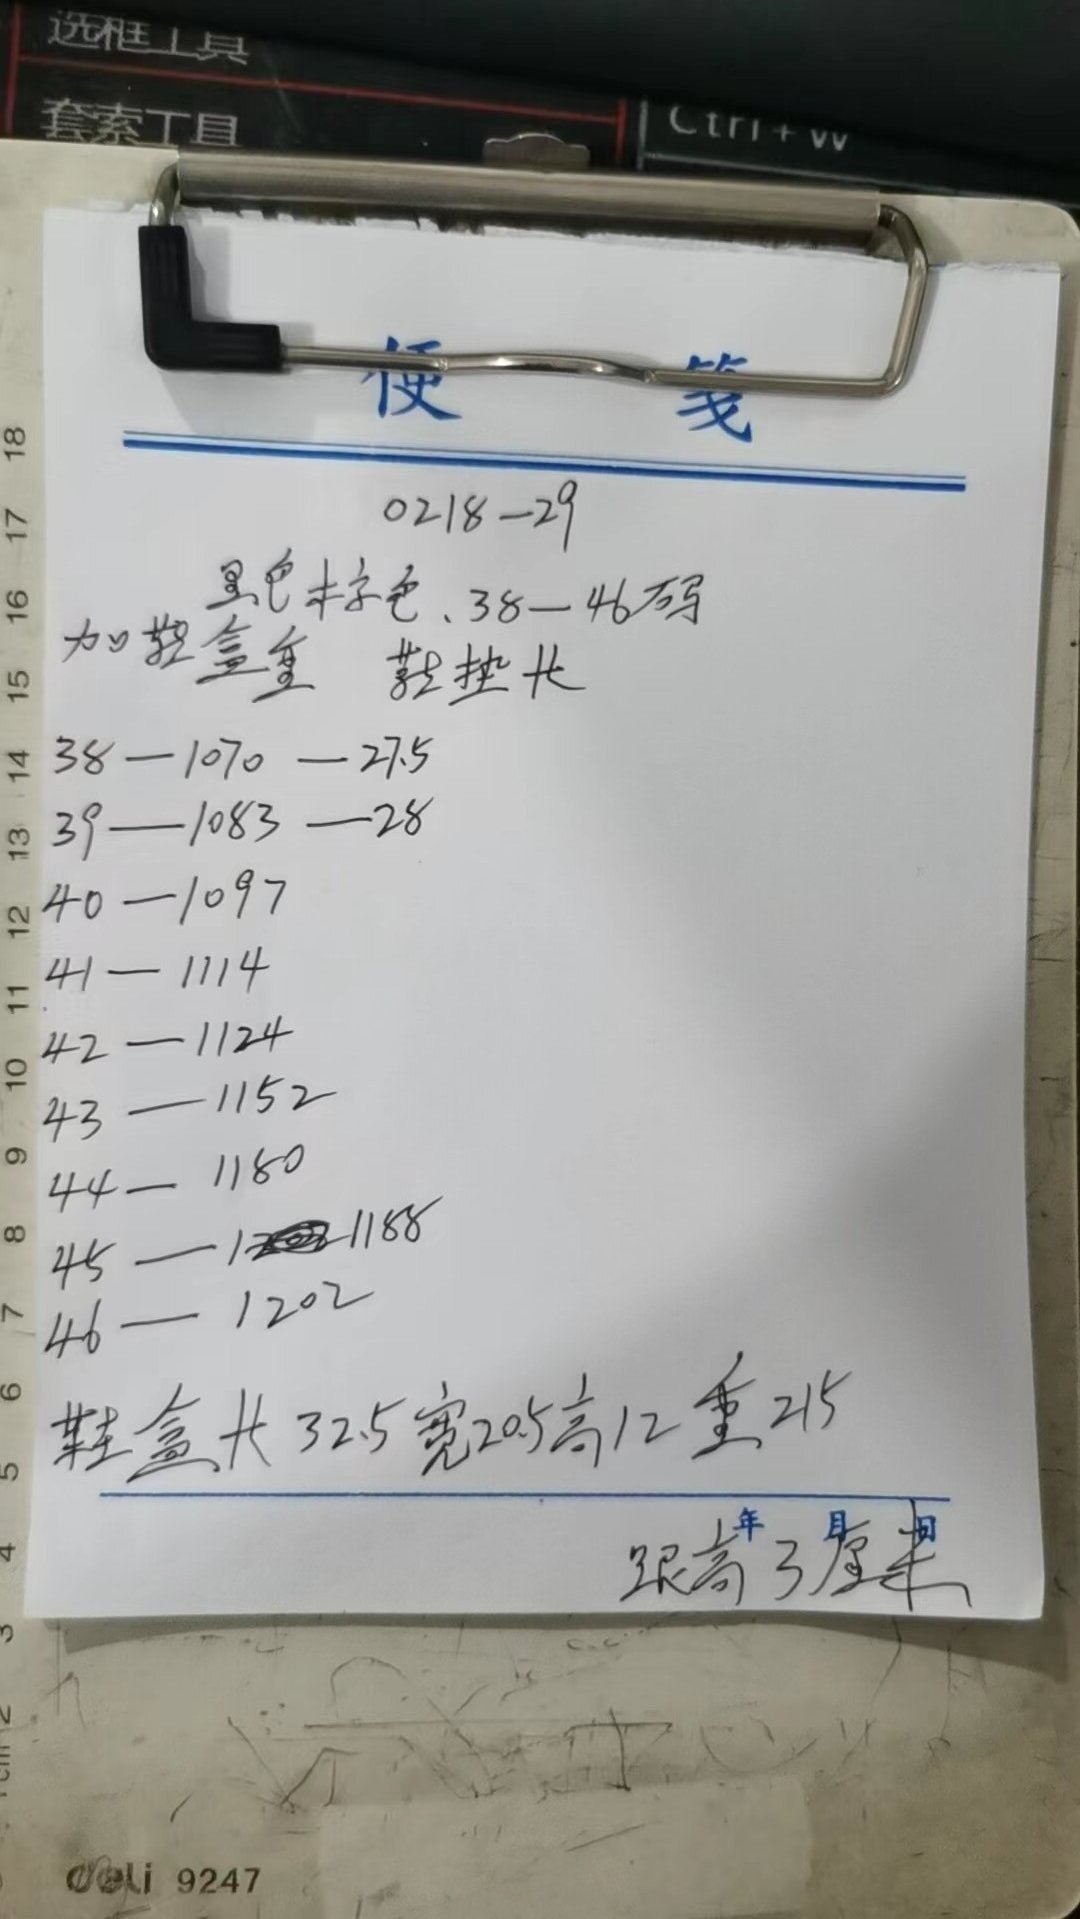 选框工具
套索工具
Ctrl+W
便 笺
0218—29
黑色棕色、38—46码
加鞋盒重 鞋垫长
38—1070—27.5
39—1083—28
40—1097
41—1114
42—1124
43—1152
44—1180
45—1188
46—1202
鞋盒长32.5宽20.5高12重215
年 月 日
跟高3厘米
18
17
16
15
14
13
12
11
10
9
8
7
6
5
4
3
2
1cm
deli 9247